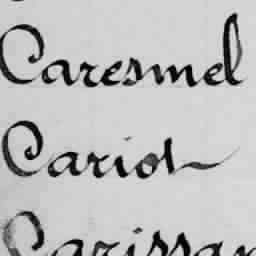 Caresmel
Cariot